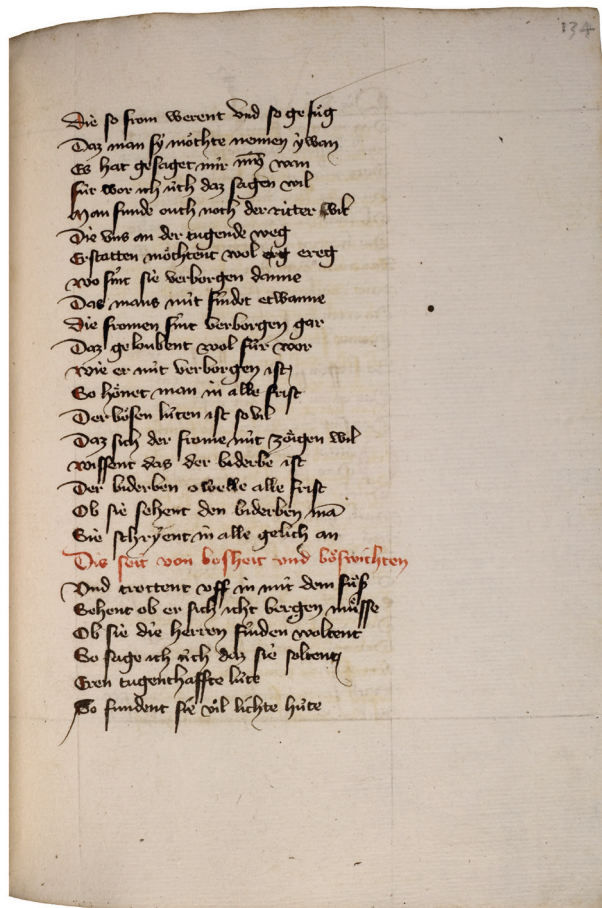 134
Die so from werent vnd so gefüg
Daz man sÿ möchte nemen ÿwan
Es hat gesaget mir min wan
Für wor ich üch daz sagen wil
Man funde ouch noch der ritter vil
Die vns an der tugende weg
Erstatten möchtent wol ereg
wo sint sie verborgen danne
Das mans nüt findet etwanne
Die fromen sint verborgen gar
Daz geloubent wol für wor
wie er nüt verborgen ist
So hönet man in alle frist
Der bösen lüten ist so vil
Daz sich der frome nüt zöigen wil
wissent das der biderbe ist
Der biderben owelle alle frist
Ob sie sehent den biderben mā
Sie schrÿent in alle gelich an
Dis seit von bosheit vnd böswichten
Vnd trottent vff in mit dem füß
Sehent ob er sich icht bergen müsse
Ob sie die herren finden woltent
So sage ich üch daz sie soltent
Eren tugenthaffte lüte
So fundent sie vil lichte hüte